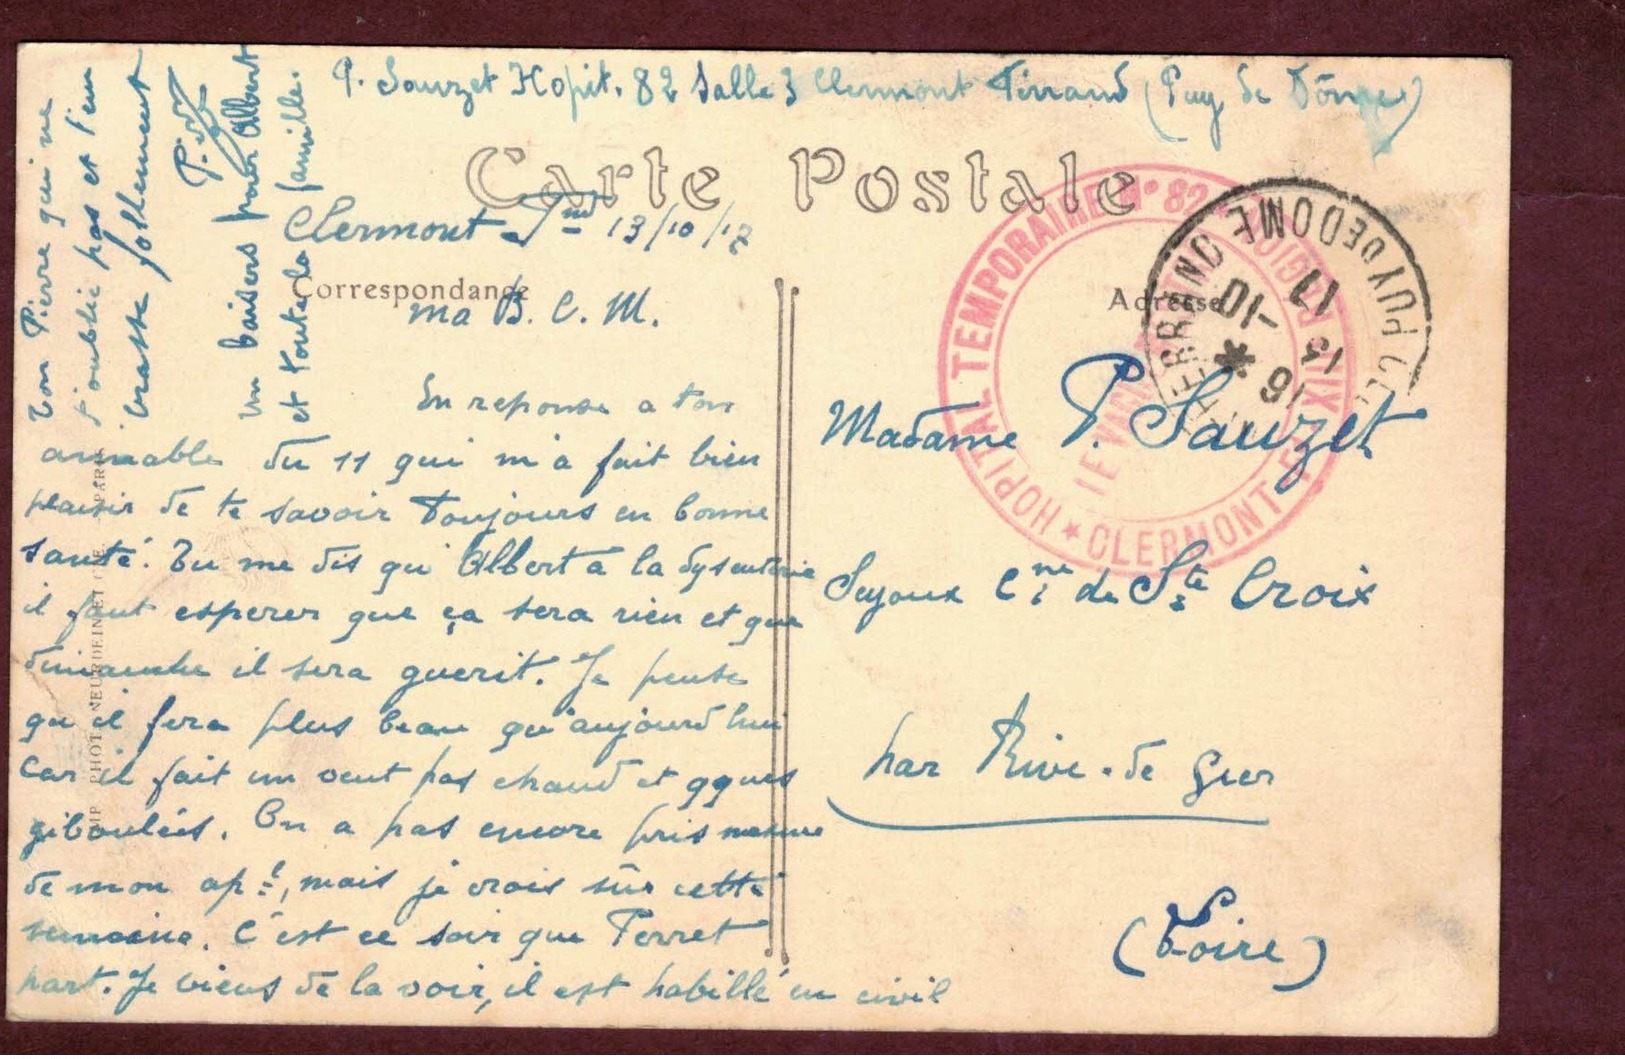 P. Sauzet Hopit. 82 Salle 3 Clermont Ferrand (Puy de Dôme)
Carte Postale
Clermont Fnd 13/10/17
Correspondance
ma B. C. M.
En reponse a ton
aimable du 11 qui m'a fait bien
plaisir de te savoir toujours en bonne
santé. Tu me dis qui Albert a la dysenterie
il faut esperer que ça sera rien et que
dimanche il sera guerit. Je pense
qu'il fera plus beau qu'aujourd hui
car il fait un vent pas chaud et qques
giboulées. On a pas encore pris mesure
de mon apl, mais je crois sûr cette
semaine. C'est ce soir que Perret
part. Je viens de la voir, il est habillé en civil
Ton Pierre qui ne
t'oublie pas et t'em
brasse follement
Pierre
Un baisers pour Albert
et toute la famille.
IMP PHOT. NEURDEIN ET CIE PARIS
Adresse
Madame P. Sauzet
Sujoux Cne de Ste Croix
par Rive-de Gier
(Loire)
HOPITAL TEMPORAIRE N° 82 XIIIe REGION
★ CLERMONT-Fd
FERRAND PUY DE DOME
16 *
13 -10
17